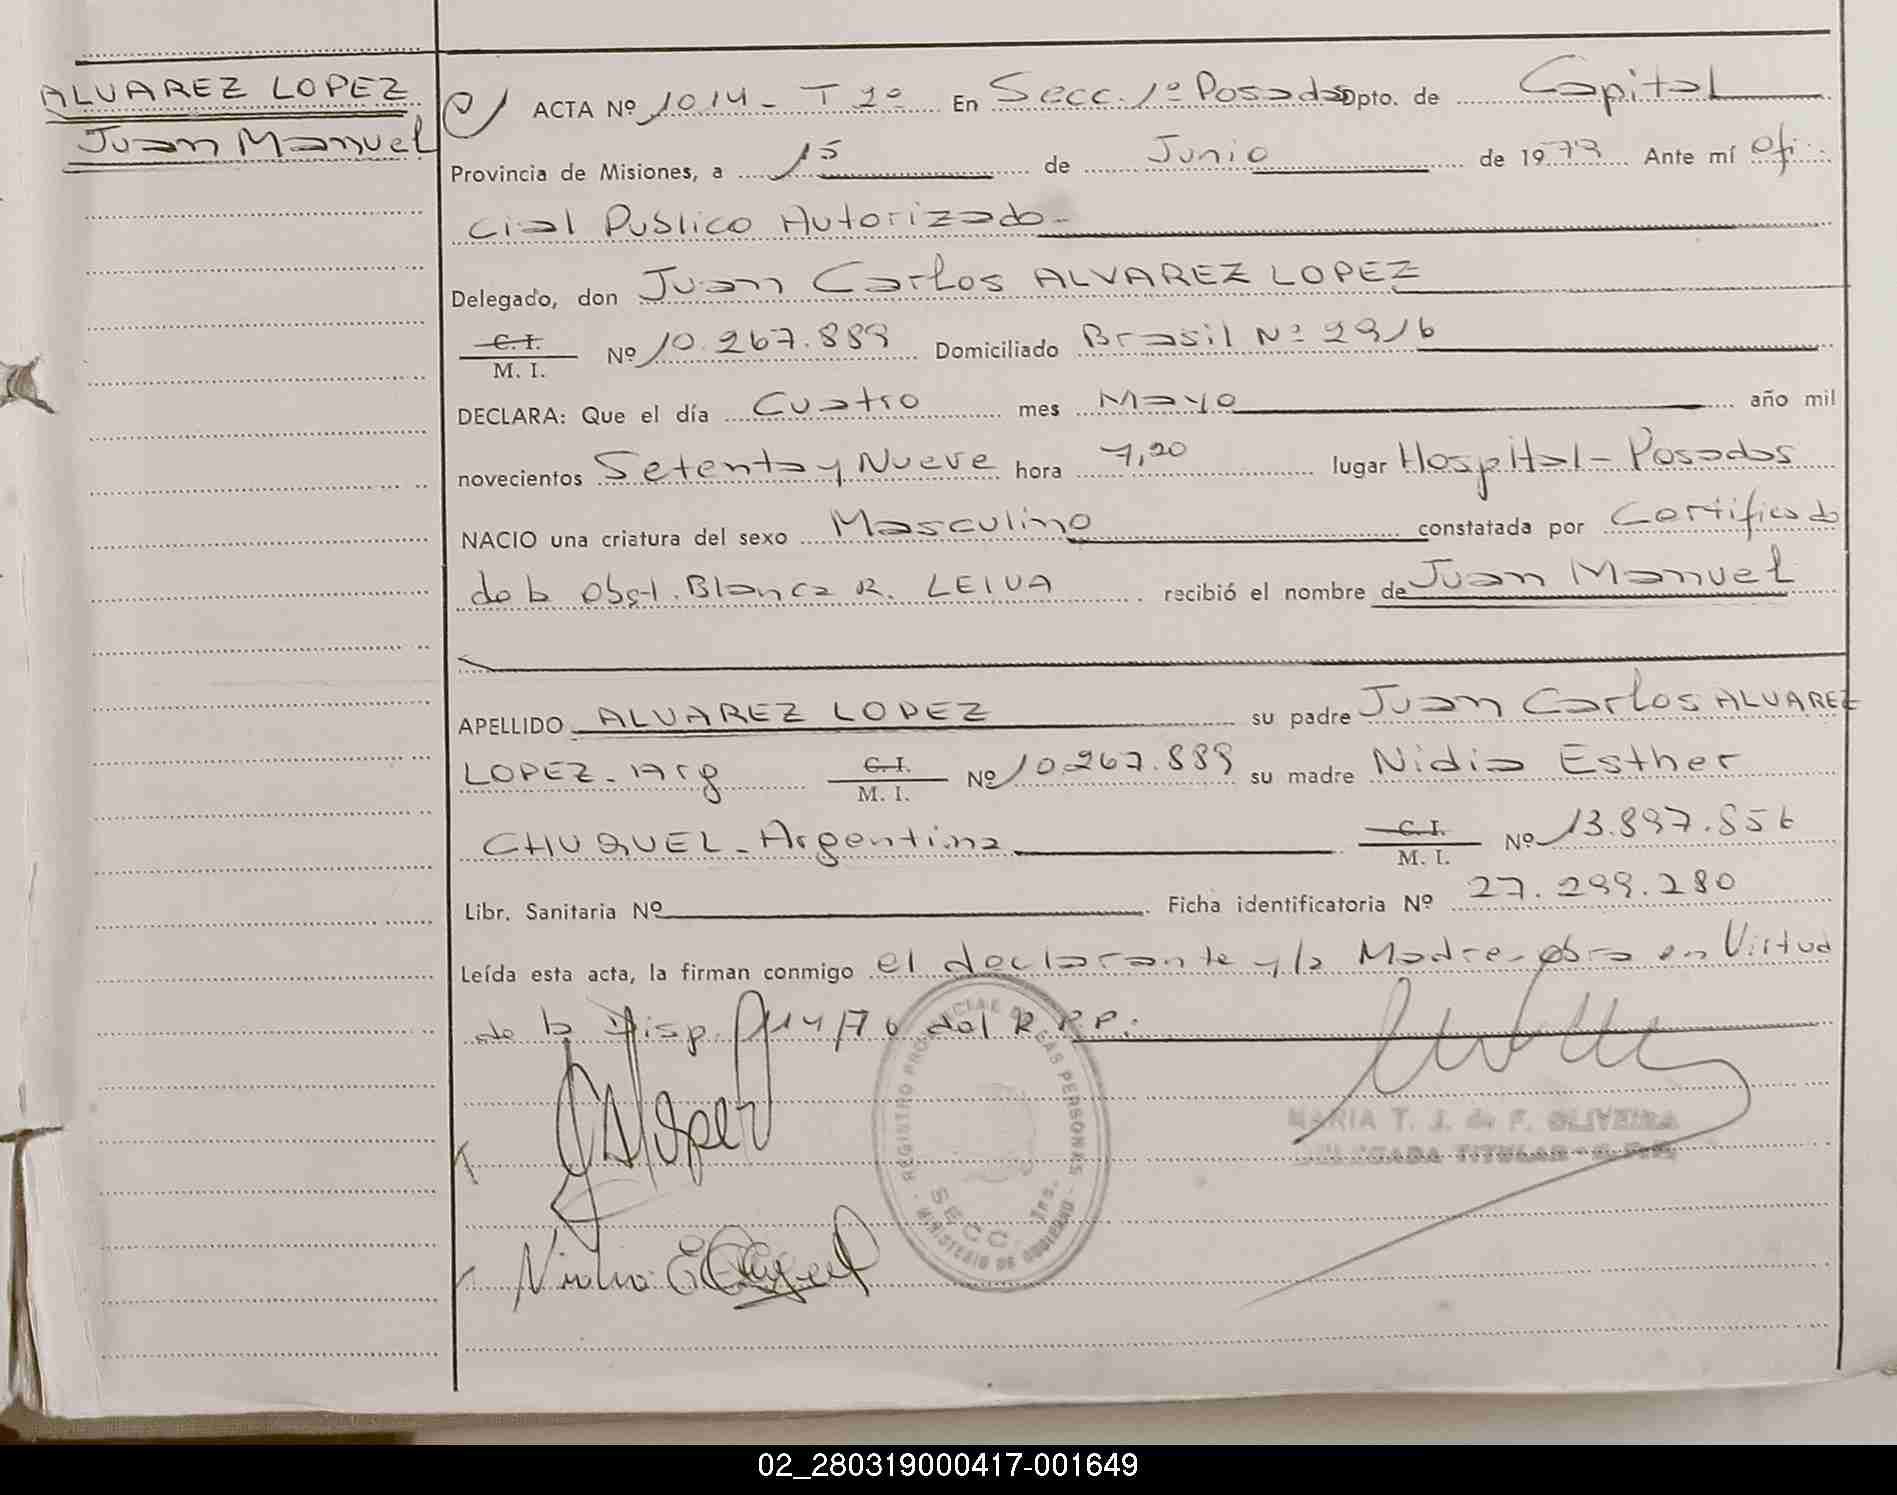 ALVAREZ LOPEZ
Juan Manuel
ACTA Nº 1014 - T 2º En Secc. 1º Posadas Dpto. de Capital
Provincia de Misiones, a 15 de Junio de 1979 Ante mí Ofi-
cial Publico Autorizado-
Delegado, don Juan Carlos ALVAREZ LOPEZ
C.I.
M. I. Nº 10.267.889 Domiciliado Brasil Nº 2916
DECLARA: Que el día Cuatro mes Mayo año mil
novecientos Setenta y Nueve hora 7,20 lugar Hospital - Posadas
NACIO una criatura del sexo Masculino constatada por Certificado
de la Obst. Blanca R. LEIVA recibió el nombre de Juan Manuel
APELLIDO ALVAREZ LOPEZ su padre Juan Carlos ALVAREZ
LOPEZ - Arg C.I. M. I. Nº 10.267.889 su madre Nidia Esther
CHUQUEL - Argentina C.I. M. I. Nº 13.897.856
Libr. Sanitaria Nº Ficha identificatoria Nº 27.299.280
Leída esta acta, la firman conmigo el declarante y la Madre - obra en Virtud
de la Disp. 114/76 del R.P.P.
REGISTRO PROVINCIAL DE LAS PERSONAS
SECC. 1ra.
MINISTERIO DE GOBIERNO
MARIA T. J. de F. OLIVEIRA
DELEGADA TITULAR - R.P.P.
02_280319000417-001649